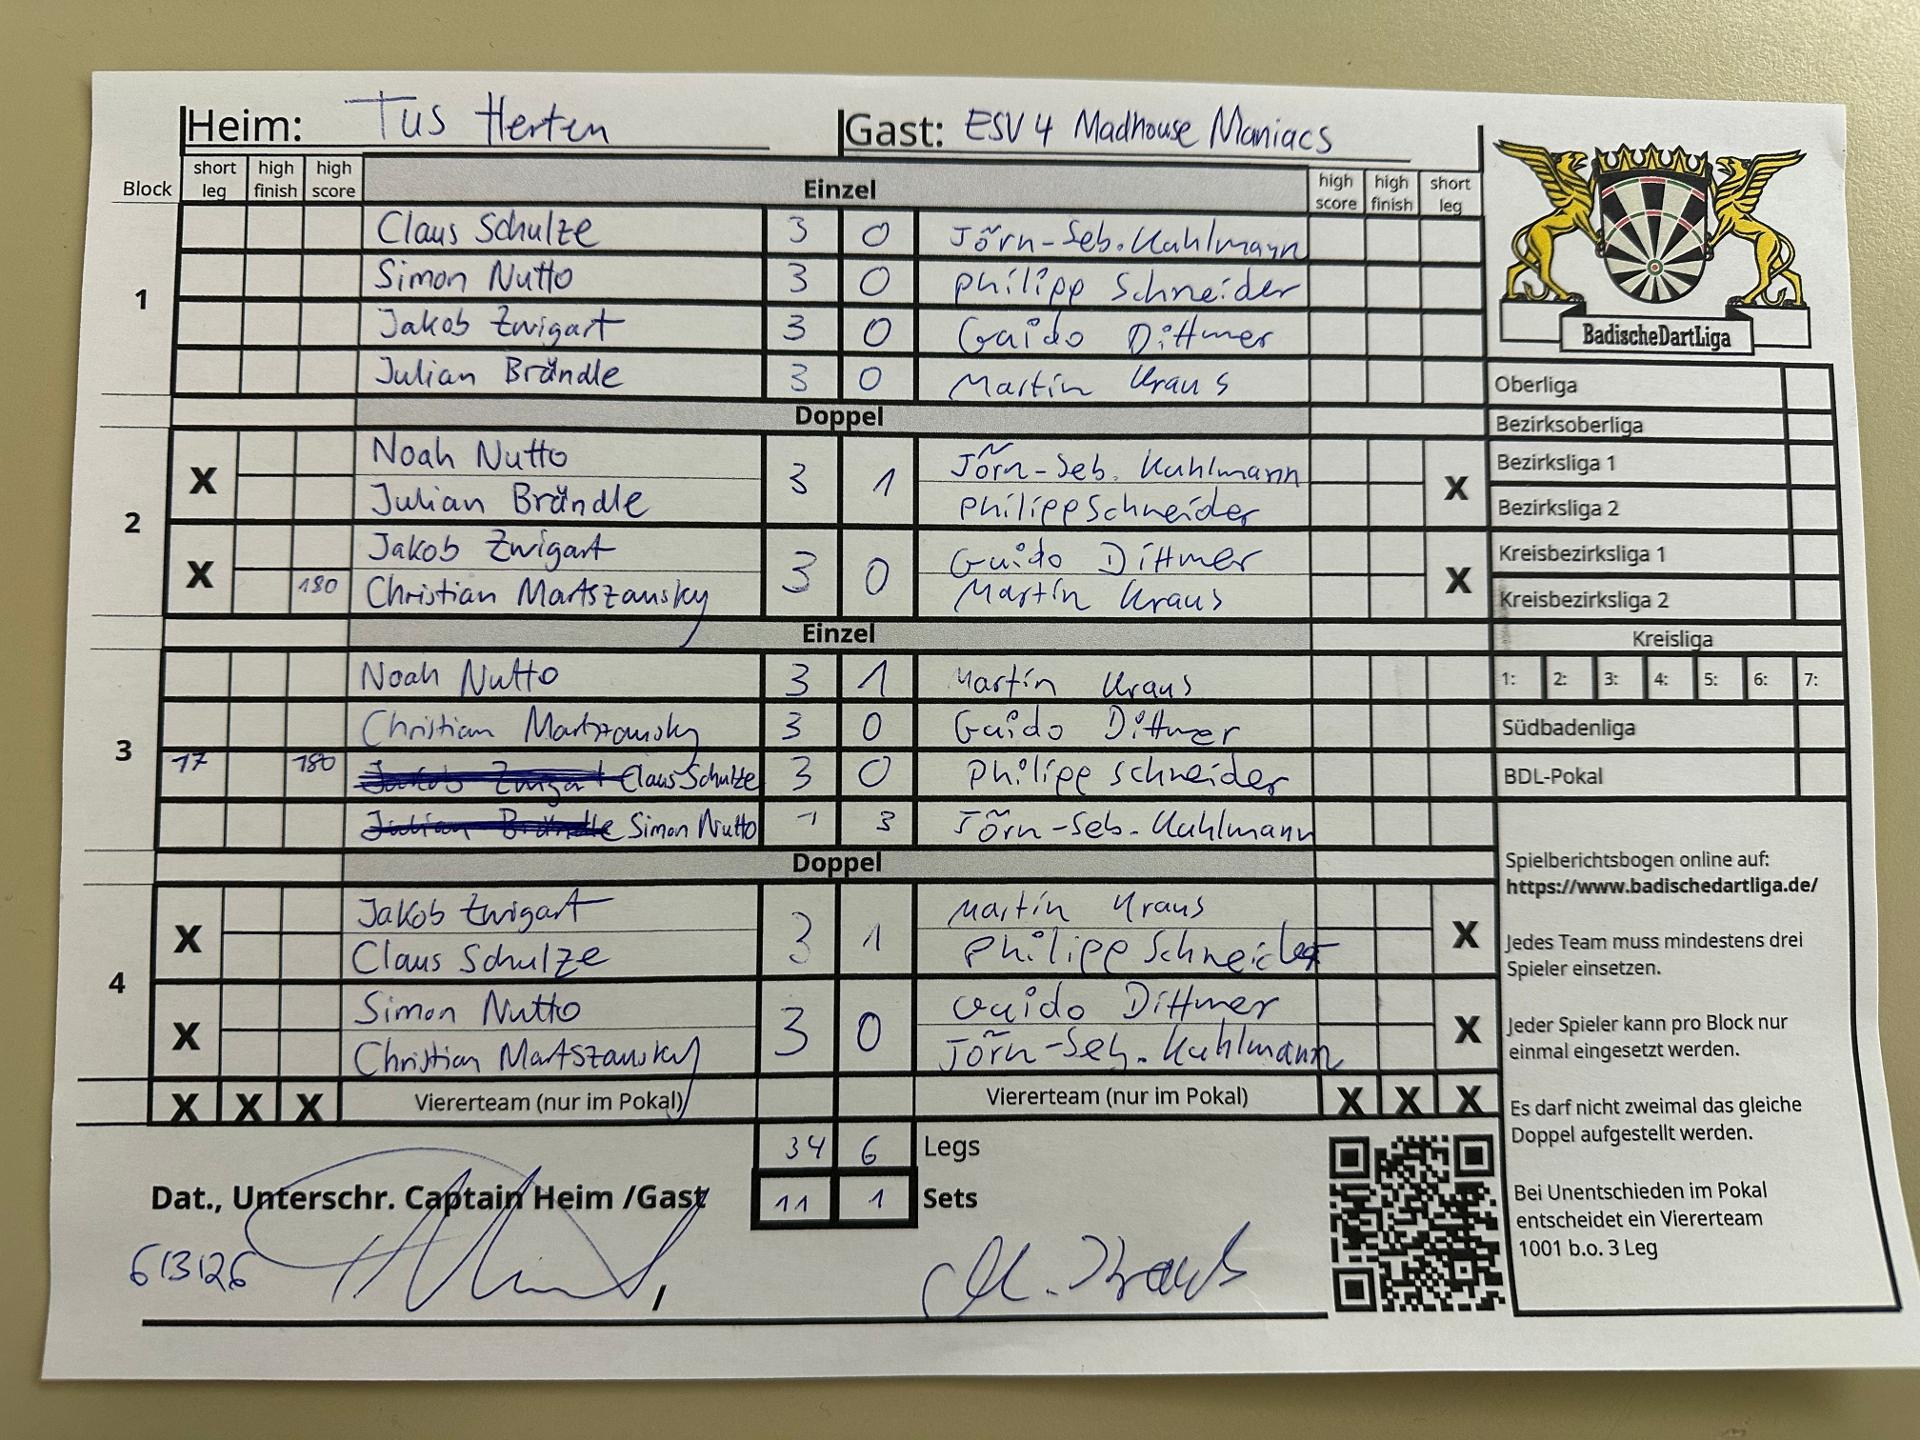 Heim: TuS Herten Gast: ESV 4 Madhouse Maniacs
Block short leg high finish high score Einzel high score high finish short leg
1
Claus Schulze 3 0 Jörn-Seb. Kuhlmann
Simon Nutto 3 0 Philipp Schneider
Jakob Zwigart 3 0 Guido Dittmer
Julian Brändle 3 0 Martin Kraus
Doppel
2
X Noah Nutto 3 1 Jörn-Seb. Kuhlmann X
Julian Brändle Philipp Schneider
X Jakob Zwigart 3 0 Guido Dittmer X
180 Christian Martszansky Martin Kraus
Einzel
3
Noah Nutto 3 1 Martin Kraus
Christian Martszansky 3 0 Guido Dittmer
17 180 Jakob Zwigart Claus Schulze 3 0 Philipp Schneider
Julian Brändle Simon Nutto 1 3 Jörn-Seb. Kuhlmann
Doppel
4
X Jakob Zwigart 3 1 Martin Kraus X
Claus Schulze Philipp Schneider
X Simon Nutto 3 0 Guido Dittmer X
Christian Martszansky Jörn-Seb. Kuhlmann
X X X Viererteam (nur im Pokal) Viererteam (nur im Pokal) X X X
34 6 Legs
11 1 Sets
Dat., Unterschr. Captain Heim /Gast
6/3/26 / M. Kraus
BadischeDartLiga
Oberliga
Bezirksoberliga
Bezirksliga 1
Bezirksliga 2
Kreisbezirksliga 1
Kreisbezirksliga 2
Kreisliga
1: 2: 3: 4: 5: 6: 7:
Südbadenliga
BDL-Pokal
Spielberichtsbogen online auf:
https://www.badischedartliga.de/
Jedes Team muss mindestens drei
Spieler einsetzen.
Jeder Spieler kann pro Block nur
einmal eingesetzt werden.
Es darf nicht zweimal das gleiche
Doppel aufgestellt werden.
Bei Unentschieden im Pokal
entscheidet ein Viererteam
1001 b.o. 3 Leg